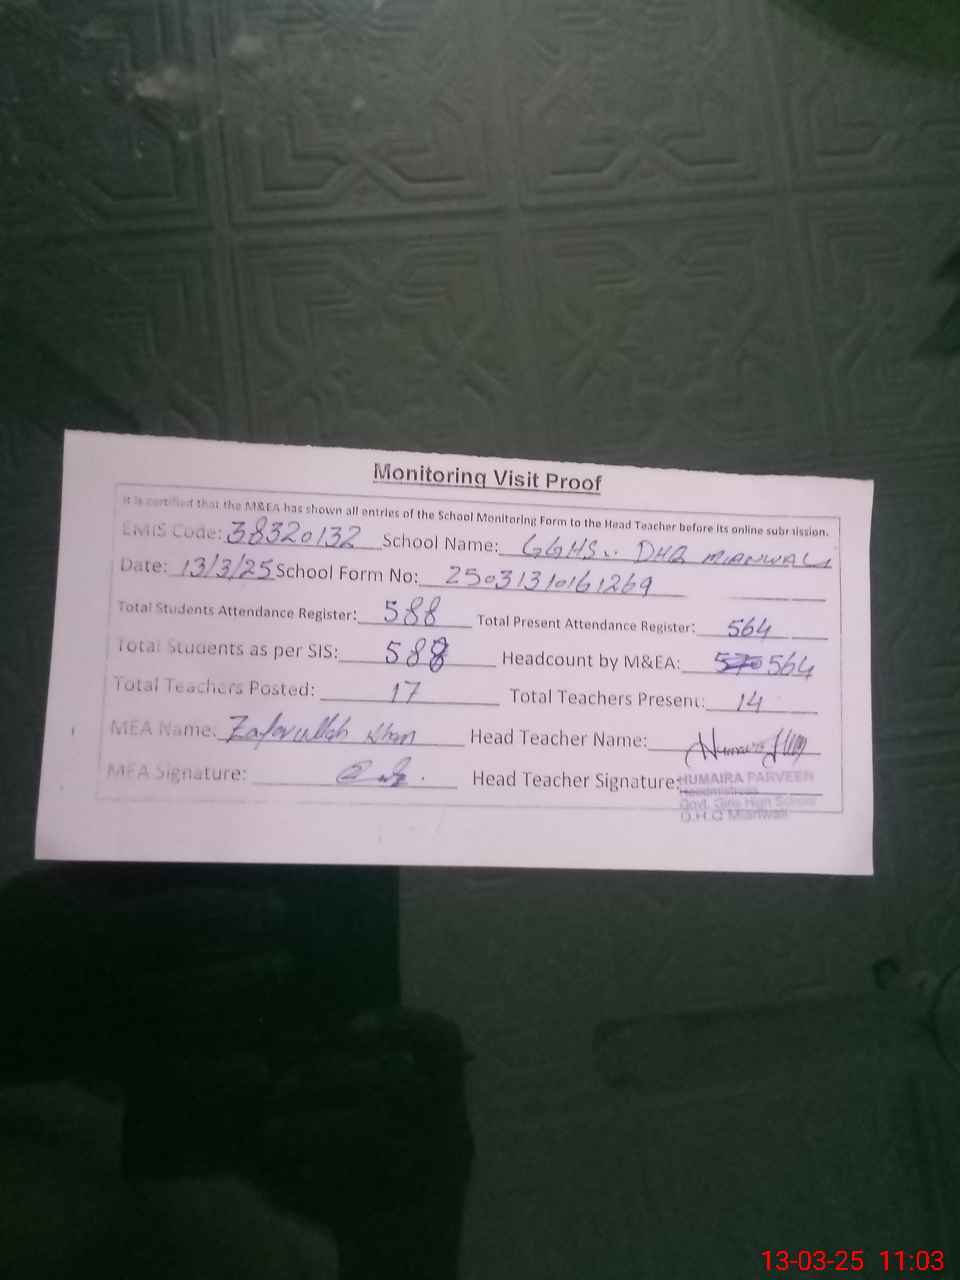 Monitoring Visit Proof
It is certified that the M&EA has shown all entries of the School Monitoring Form to the Head Teacher before its online submission.
EMIS Code: 38320132 School Name: GGHS.. DHQ MIANWALI
Date: 13/3/25 School Form No: 25031310161269
Total Students Attendance Register: 588 Total Present Attendance Register: 564
Total Students as per SIS: 588 Headcount by M&EA: 570 564
Total Teachers Posted: 17 Total Teachers Present: 14
MEA Name: Zafarullah Khan Head Teacher Name:
MEA Signature: Head Teacher Signature:
HUMAIRA PARVEEN
Headmistress
Govt. Girls High School
D.H.Q Mianwali
13-03-25 11:03